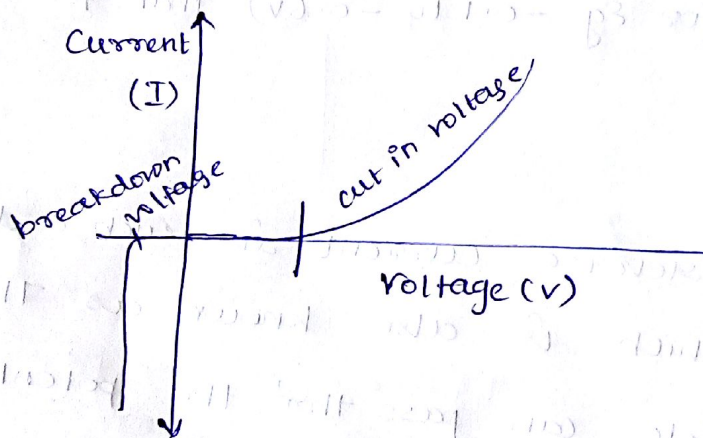 Current
(I)
breakdown
voltage
cut in voltage
voltage (v)